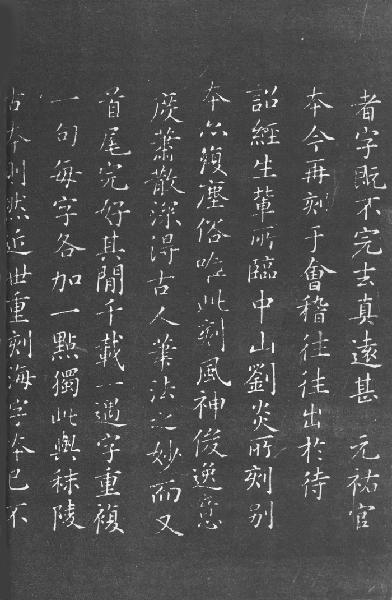 者字既不完去真遠甚 元祐官
本今再刻于會稽往往出於待
詔經生輩所臨中山劉炎所刻别
本尒復塵俗唯此刻風神俊逸意
度蕭散深得古人筆法之妙而又
首尾完好其間千載一遇字重複
一句每字各加一點獨此與秣陵
古本則然近世重刻海字本已不